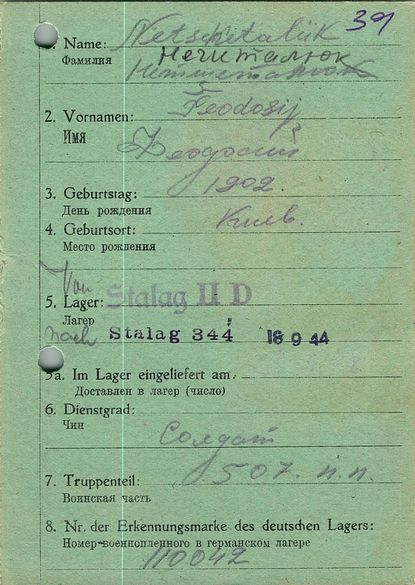 Netschitaliuk 39
1. Name:
Фамилия
Нечиталюк
2. Vornamen: Feodosij
Имя
Феодосий
3. Geburtstag: 1902.
День рождения
4. Geburtsort: Киев.
Место рождения
Von
5. Lager: Stalag II D
Лагер
nach Stalag 344 18 9 44
5a. Im Lager eingeliefert am.
Доставлен в лагер (число)
6. Dienstgrad:
Чин
Солдат
7. Truppenteil: 507. п.п.
Воинская часть
8. Nr. der Erkennungsmarke des deutschen Lagers:
Номер военнопленного в германском лагере
110042